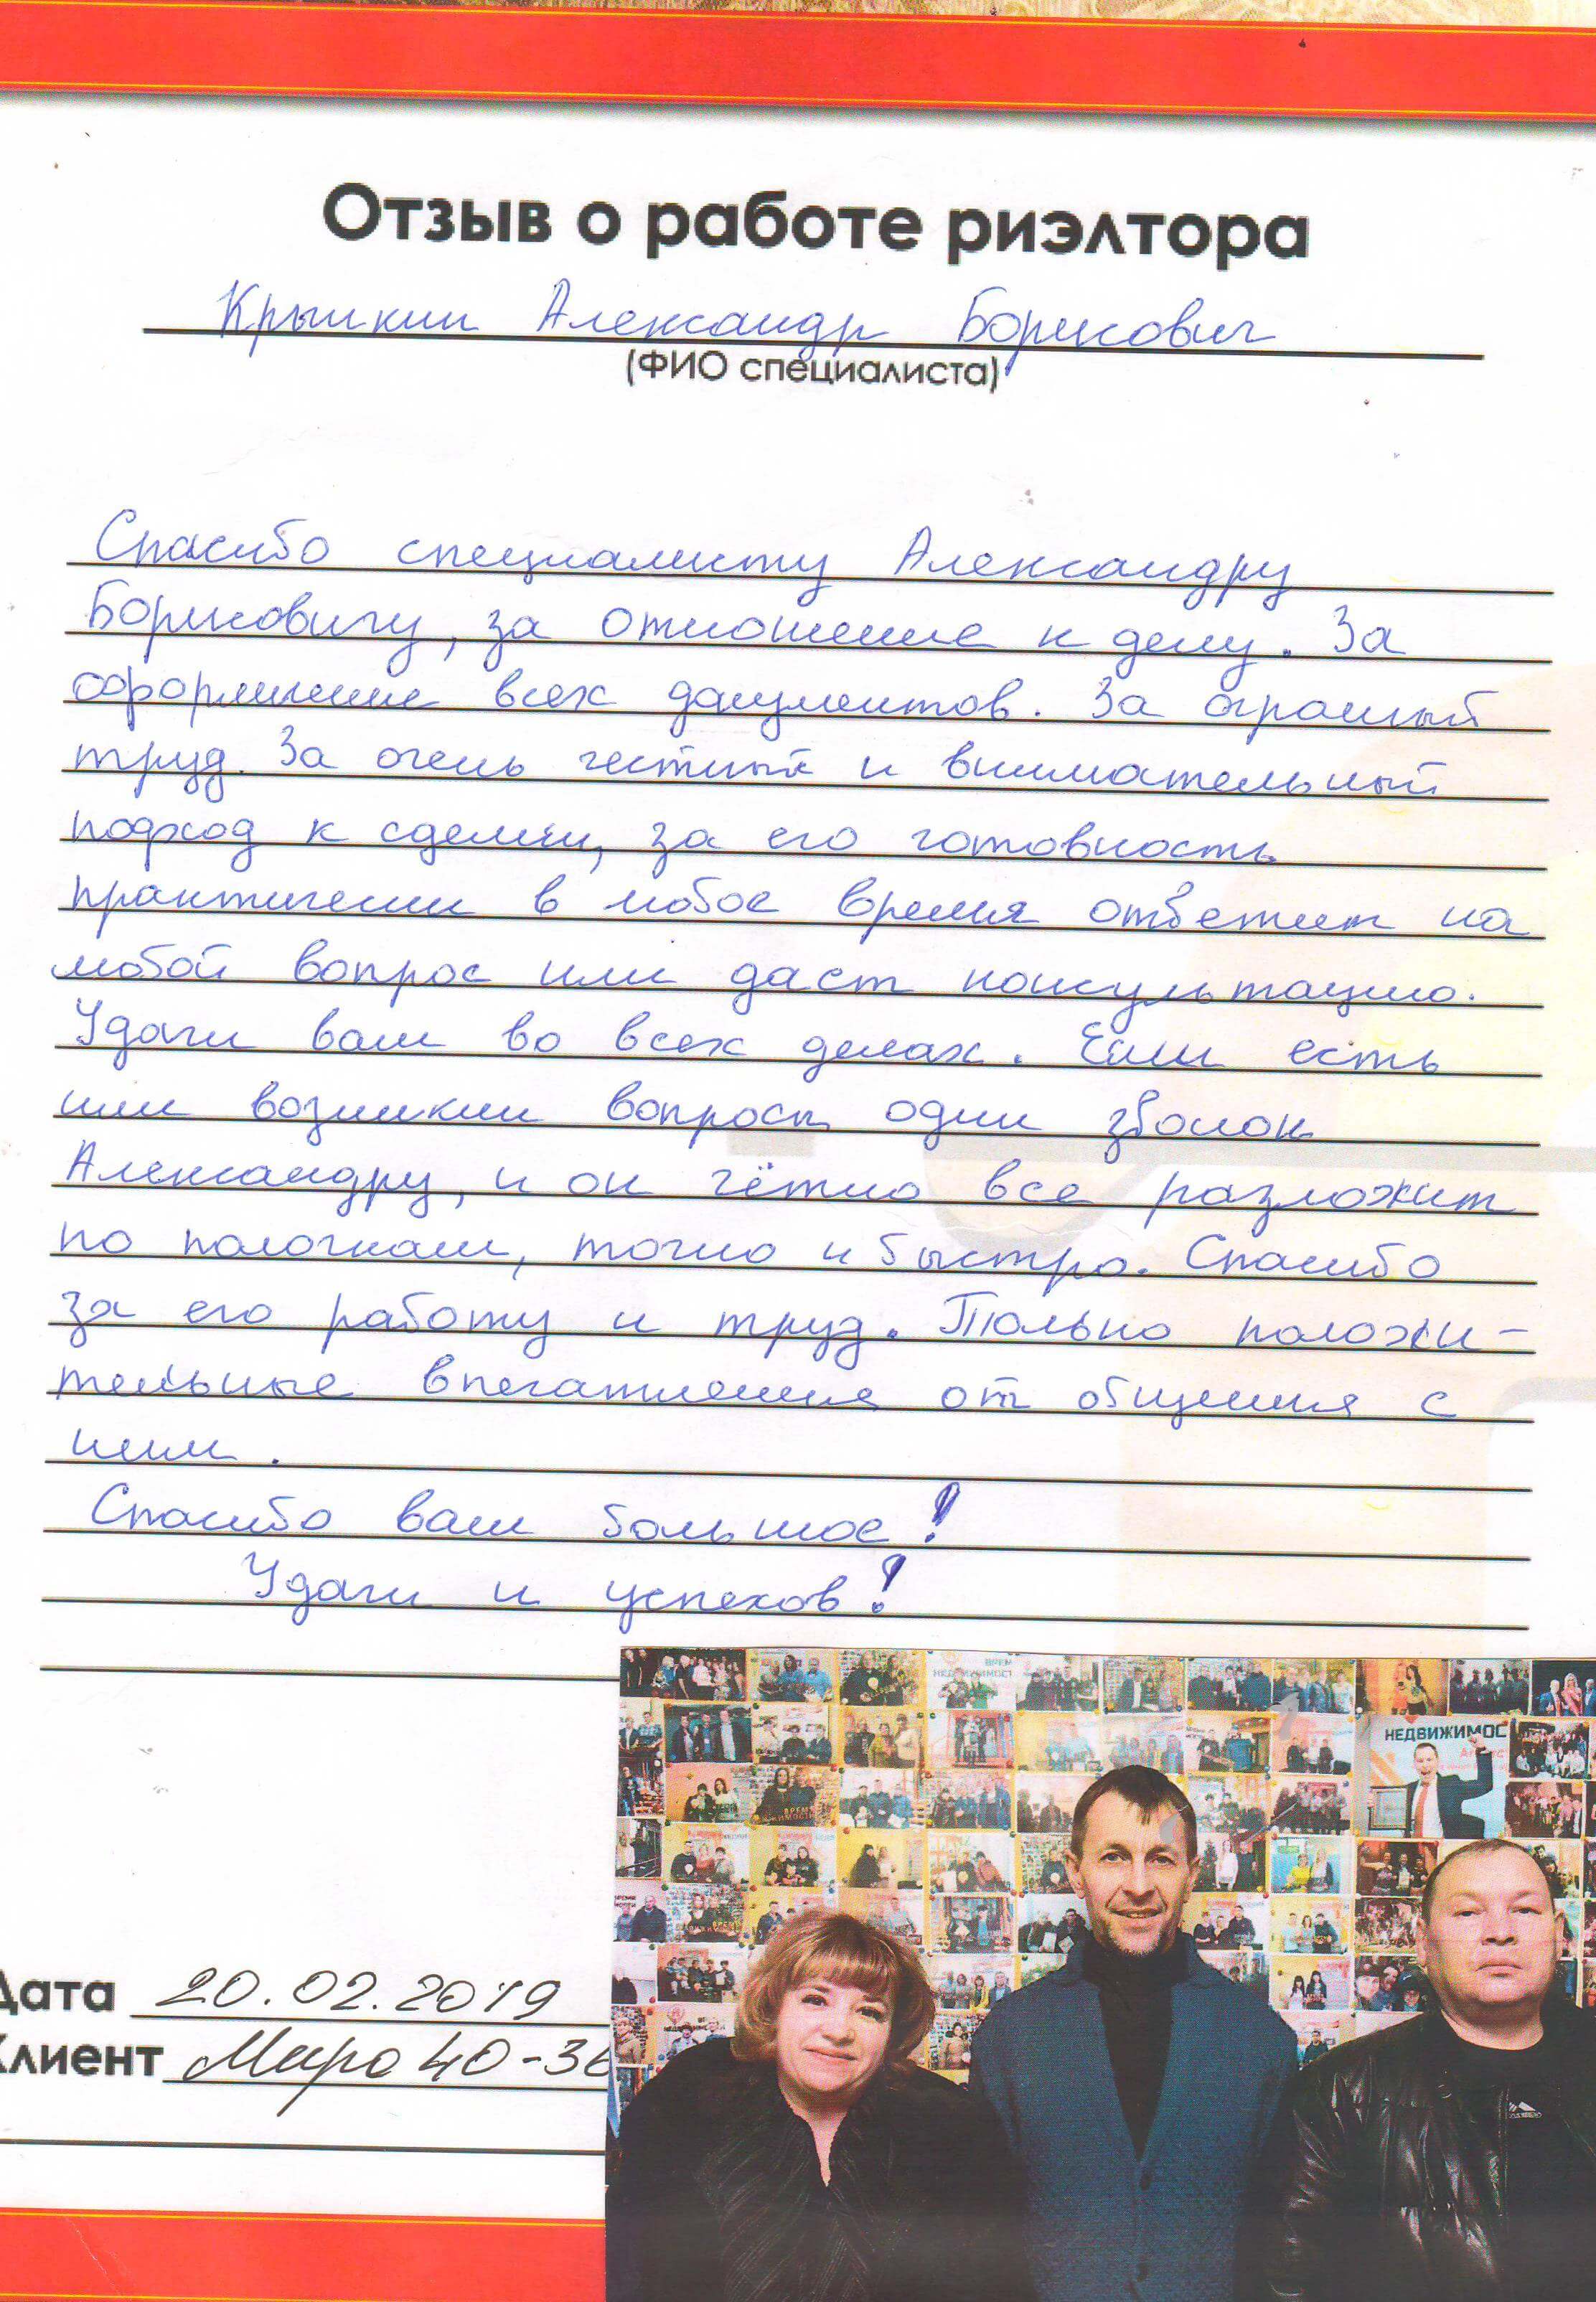 Отзыв о работе риэлтора
Крышкин Александр Борисович
(ФИО специалиста)
Спасибо специалисту Александру
Борисовичу, за отношение к делу. За
оформление всех документов. За огромный
труд. За очень честный и внимательный
подход к сделки, за его готовность
практически в любое время ответит на
любой вопрос или даст консультацию.
Удачи вам во всех делах. Если есть
или возникли вопросы один звонок
Александру, и он чётко все разложит
по полочкам, точно и быстро. Спасибо
за его работу и труд. Только положи-
тельные впечатления от общения с
ним.
Спасибо вам большое!
Удачи и успехов!
НЕДВИЖИМОС
Дата 20.02.2019
Клиент Мира 40-36